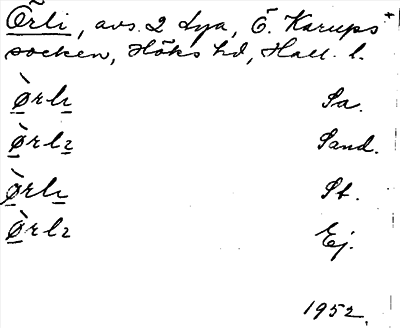 Örli, avs. 2 dya, Ö. Karups
socken, Höks hd, Hall. l.
Ørlı Sa.
Ørlı Sand.
Ørlı St.
Ørlı Ej.
1952.